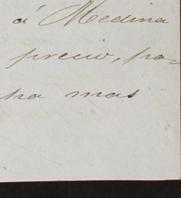 á Medina
precio, pa-
ha mas